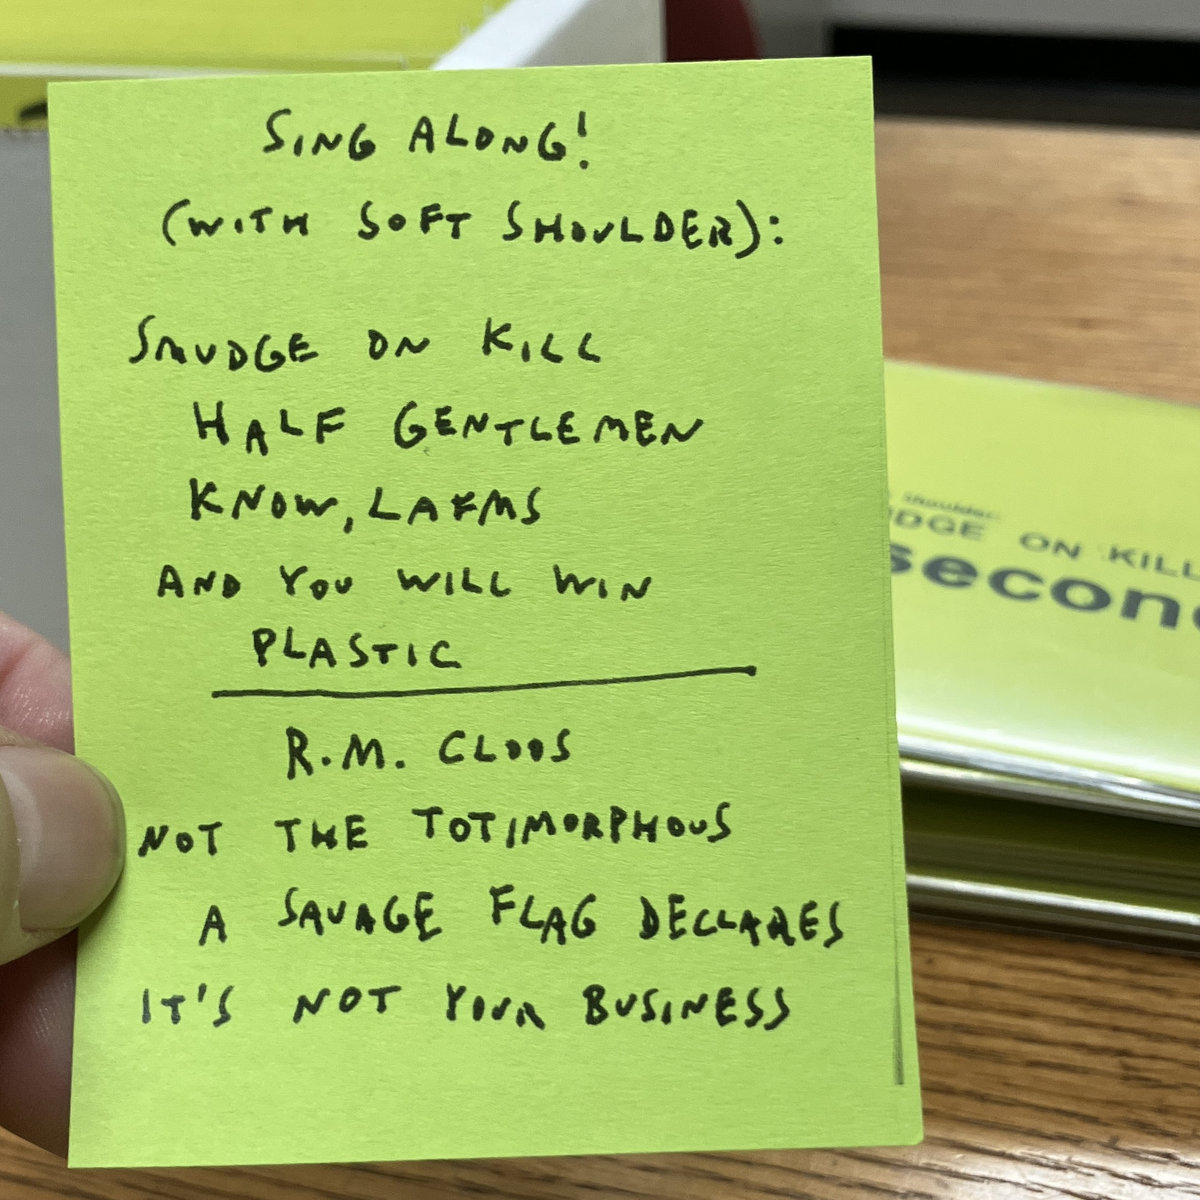 SING ALONG!
(WITH SOFT SHOULDER):
SMUDGE ON KILL
HALF GENTLEMEN
KNOW, LAFMS
AND YOU WILL WIN
PLASTIC
R.M. CLOOS
NOT THE TOTIMORPHOUS
A SAVAGE FLAG DECLARES
IT'S NOT YOUR BUSINESS
shoulder:
DGE ON KILL
second